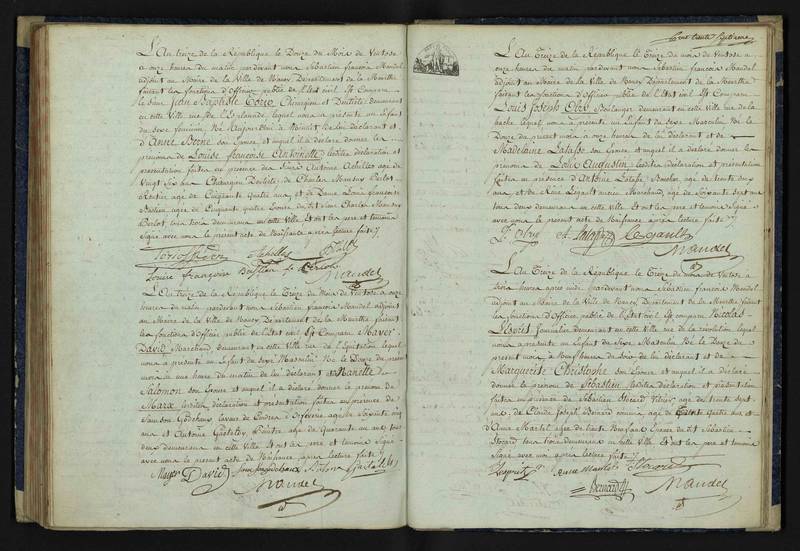 L'An treize de la République le Douze du Mois de Ventose
a onze heures du matin pardevant nous Sébastien françois Mandel
adjoint au Maire de la Ville de Nancy Département de la Meurthe
faisant les fonctions d'officier public de l'état civil Est Comparu
le Sieur Jean Baptiste Chirurgien et Dentiste demeurant
en cette Ville rue de l'Esplanade lequel nous a présenté un Enfant
du sexe féminin Né Aujourd'hui à Minuit de lui déclarant et
d'Anne son Epouse et auquel il a déclaré donner les
prénoms de Louise françoise Antoinette lesdites déclaration et
présentation faites en présence des Sieurs Antoine Achilles agé de
Vingt Six ans Chirurgien Dentiste de Charles Mansuy
Rentier agé de Cinquante quatre ans et de Dame Louise françoise
Bastien agée de Cinquante quatre Epouse du Sieur Charles Mansuy
tous trois demeurans en cette Ville Et ont les père et témoins
Signé avec nous le présent acte de Naissance après lecture faite
Achilles
Louise françoise Bastien
Mandel
L'An treize de la République le Treize du Mois de Ventose a onze
heures du matin pardevant nous Sébastien françois Mandel adjoint
au Maire de la Ville de Nancy Département de la Meurthe faisant
les fonctions d'officier public de l'état civil Est Comparu Mayer
David Marchand demeurant en cette Ville rue de l'Equitation lequel
nous a présenté un Enfant du sexe Masculin Né le Douze du présent
mois à une heure du matin de lui déclarant et de Nanette
Salomon son Epouse et auquel il a déclaré donner le prénom de
Marx lesdites déclaration et présentation faites en présence de
Samson Godechaux agé de Soixante cinq
ans et Antoine Peintre agé de Quarante un ans tous
deux demeurans en cette Ville Et ont les père et témoins Signé
avec nous le présent acte de Naissance après lecture faite
Mayer David
Mandel
Cent trente
L'An Treize de la République le Treize du mois de Ventose a
onze heures du matin pardevant nous Sébastien françois Mandel
adjoint au Maire de la Ville de Nancy Département de la Meurthe
faisant les fonctions d'officier public de l'état civil Est Comparu
Louis Joseph Boulanger demeurant en cette Ville rue de la
hache lequel nous a présenté un Enfant du sexe Masculin Né le
Douze du présent mois à onze heures de lui déclarant et de
Madelaine son Epouse et auquel il a déclaré donner les
prénoms de Louis Augustin lesdites déclaration et présentation
faites en présence d'Antoine agé de trente deux
ans et de Légault Marchand agé de Soixante sept ans
tous deux demeurans en cette Ville Et ont les père et témoins Signé
avec nous le présent acte de Naissance après lecture faite
Legault
Mandel
L'An Treize de la République le Treize du mois de Ventose a
trois heures après midi pardevant nous Sébastien françois Mandel
adjoint au Maire de la Ville de Nancy Département de la Meurthe faisant
les fonctions d'officier public de l'état civil Est comparu Nicolas
demeurant en cette Ville rue de la révolution lequel
nous a présenté un Enfant du sexe Masculin Né le Douze du
présent mois à Neuf heures du soir de lui déclarant et de
Marguerite Christophe son Epouse et auquel il a déclaré
donner le prénom de Sébastien lesdites déclaration et présentation
faites en présence de Sébastien agé de trente Sept
ans, de Claude Joseph Bernard agé de quatre ans et
d'Anne Martel agée de trente Neuf ans Epouse de Sébastien
tous trois demeurans en cette Ville Et ont les père et témoins
Signé avec nous le présent acte de Naissance après lecture faite
Anne Martel
Bernard
Mandel